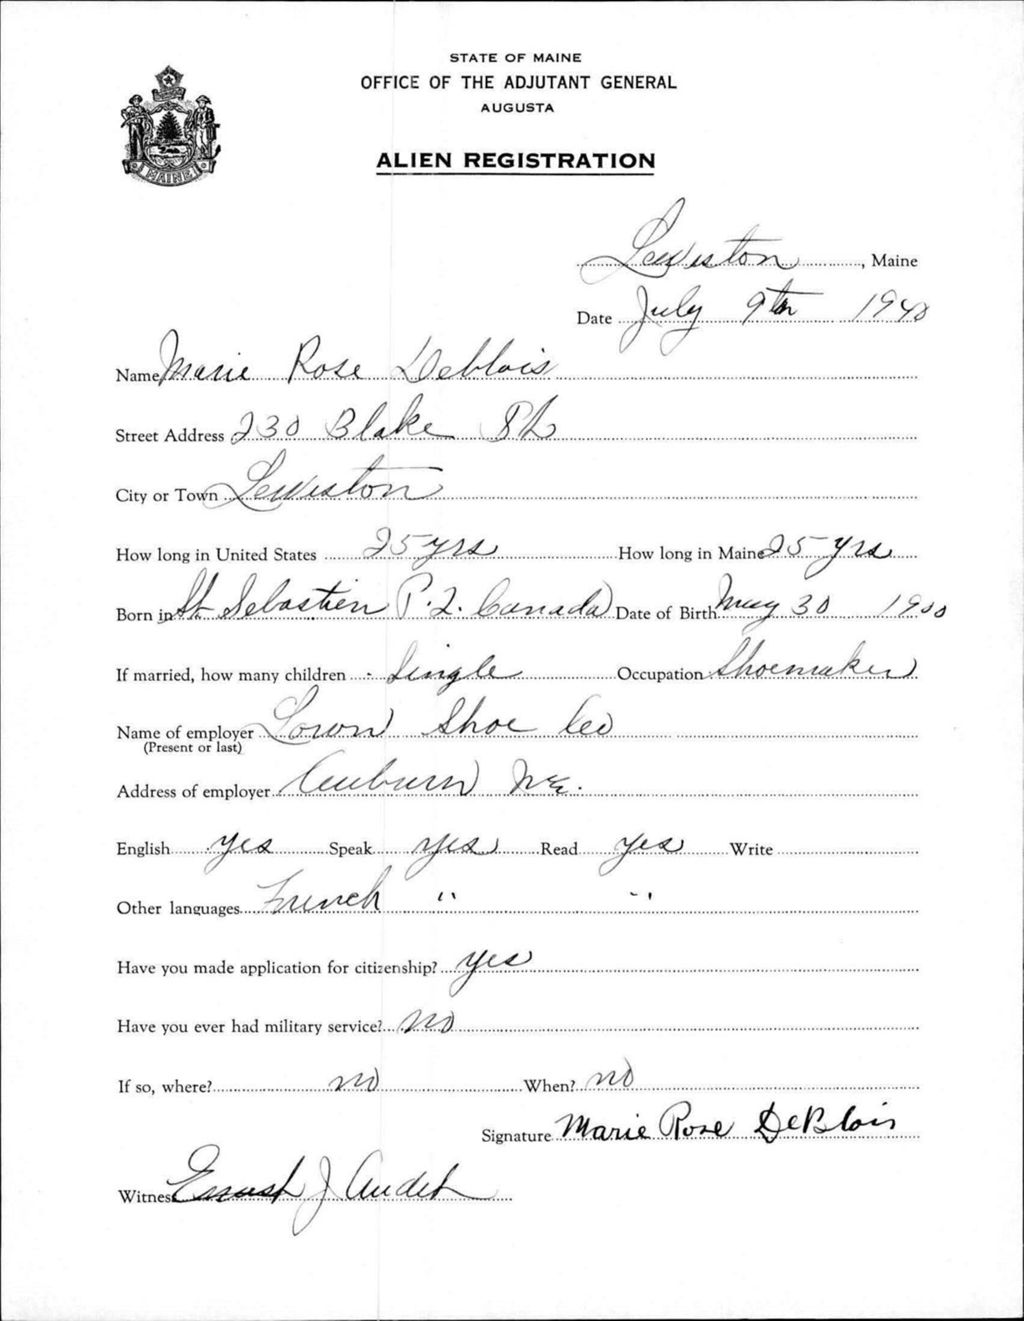 STATE OF MAINE
OFFICE OF THE ADJUTANT GENERAL
AUGUSTA
ALIEN REGISTRATION
MAINE
Lewiston, Maine
Date July 9th 1940
Name Marie Rose Deblois
Street Address 230 Blake St
City or Town Lewiston
How long in United States 25 yrs How long in Maine 25 yrs
Born in St Sebastien P.Q. Canada Date of Birth May 30 1900
If married, how many children - Single Occupation Shoemaker
Name of employer Lown Shoe Co
(Present or last)
Address of employer Auburn Me.
English yes Speak yes Read yes Write
Other languages French " "
Have you made application for citizenship? yes
Have you ever had military service? no
If so, where? no When? no
Signature Marie Rose DeBlois
Witness Ernest J Audet